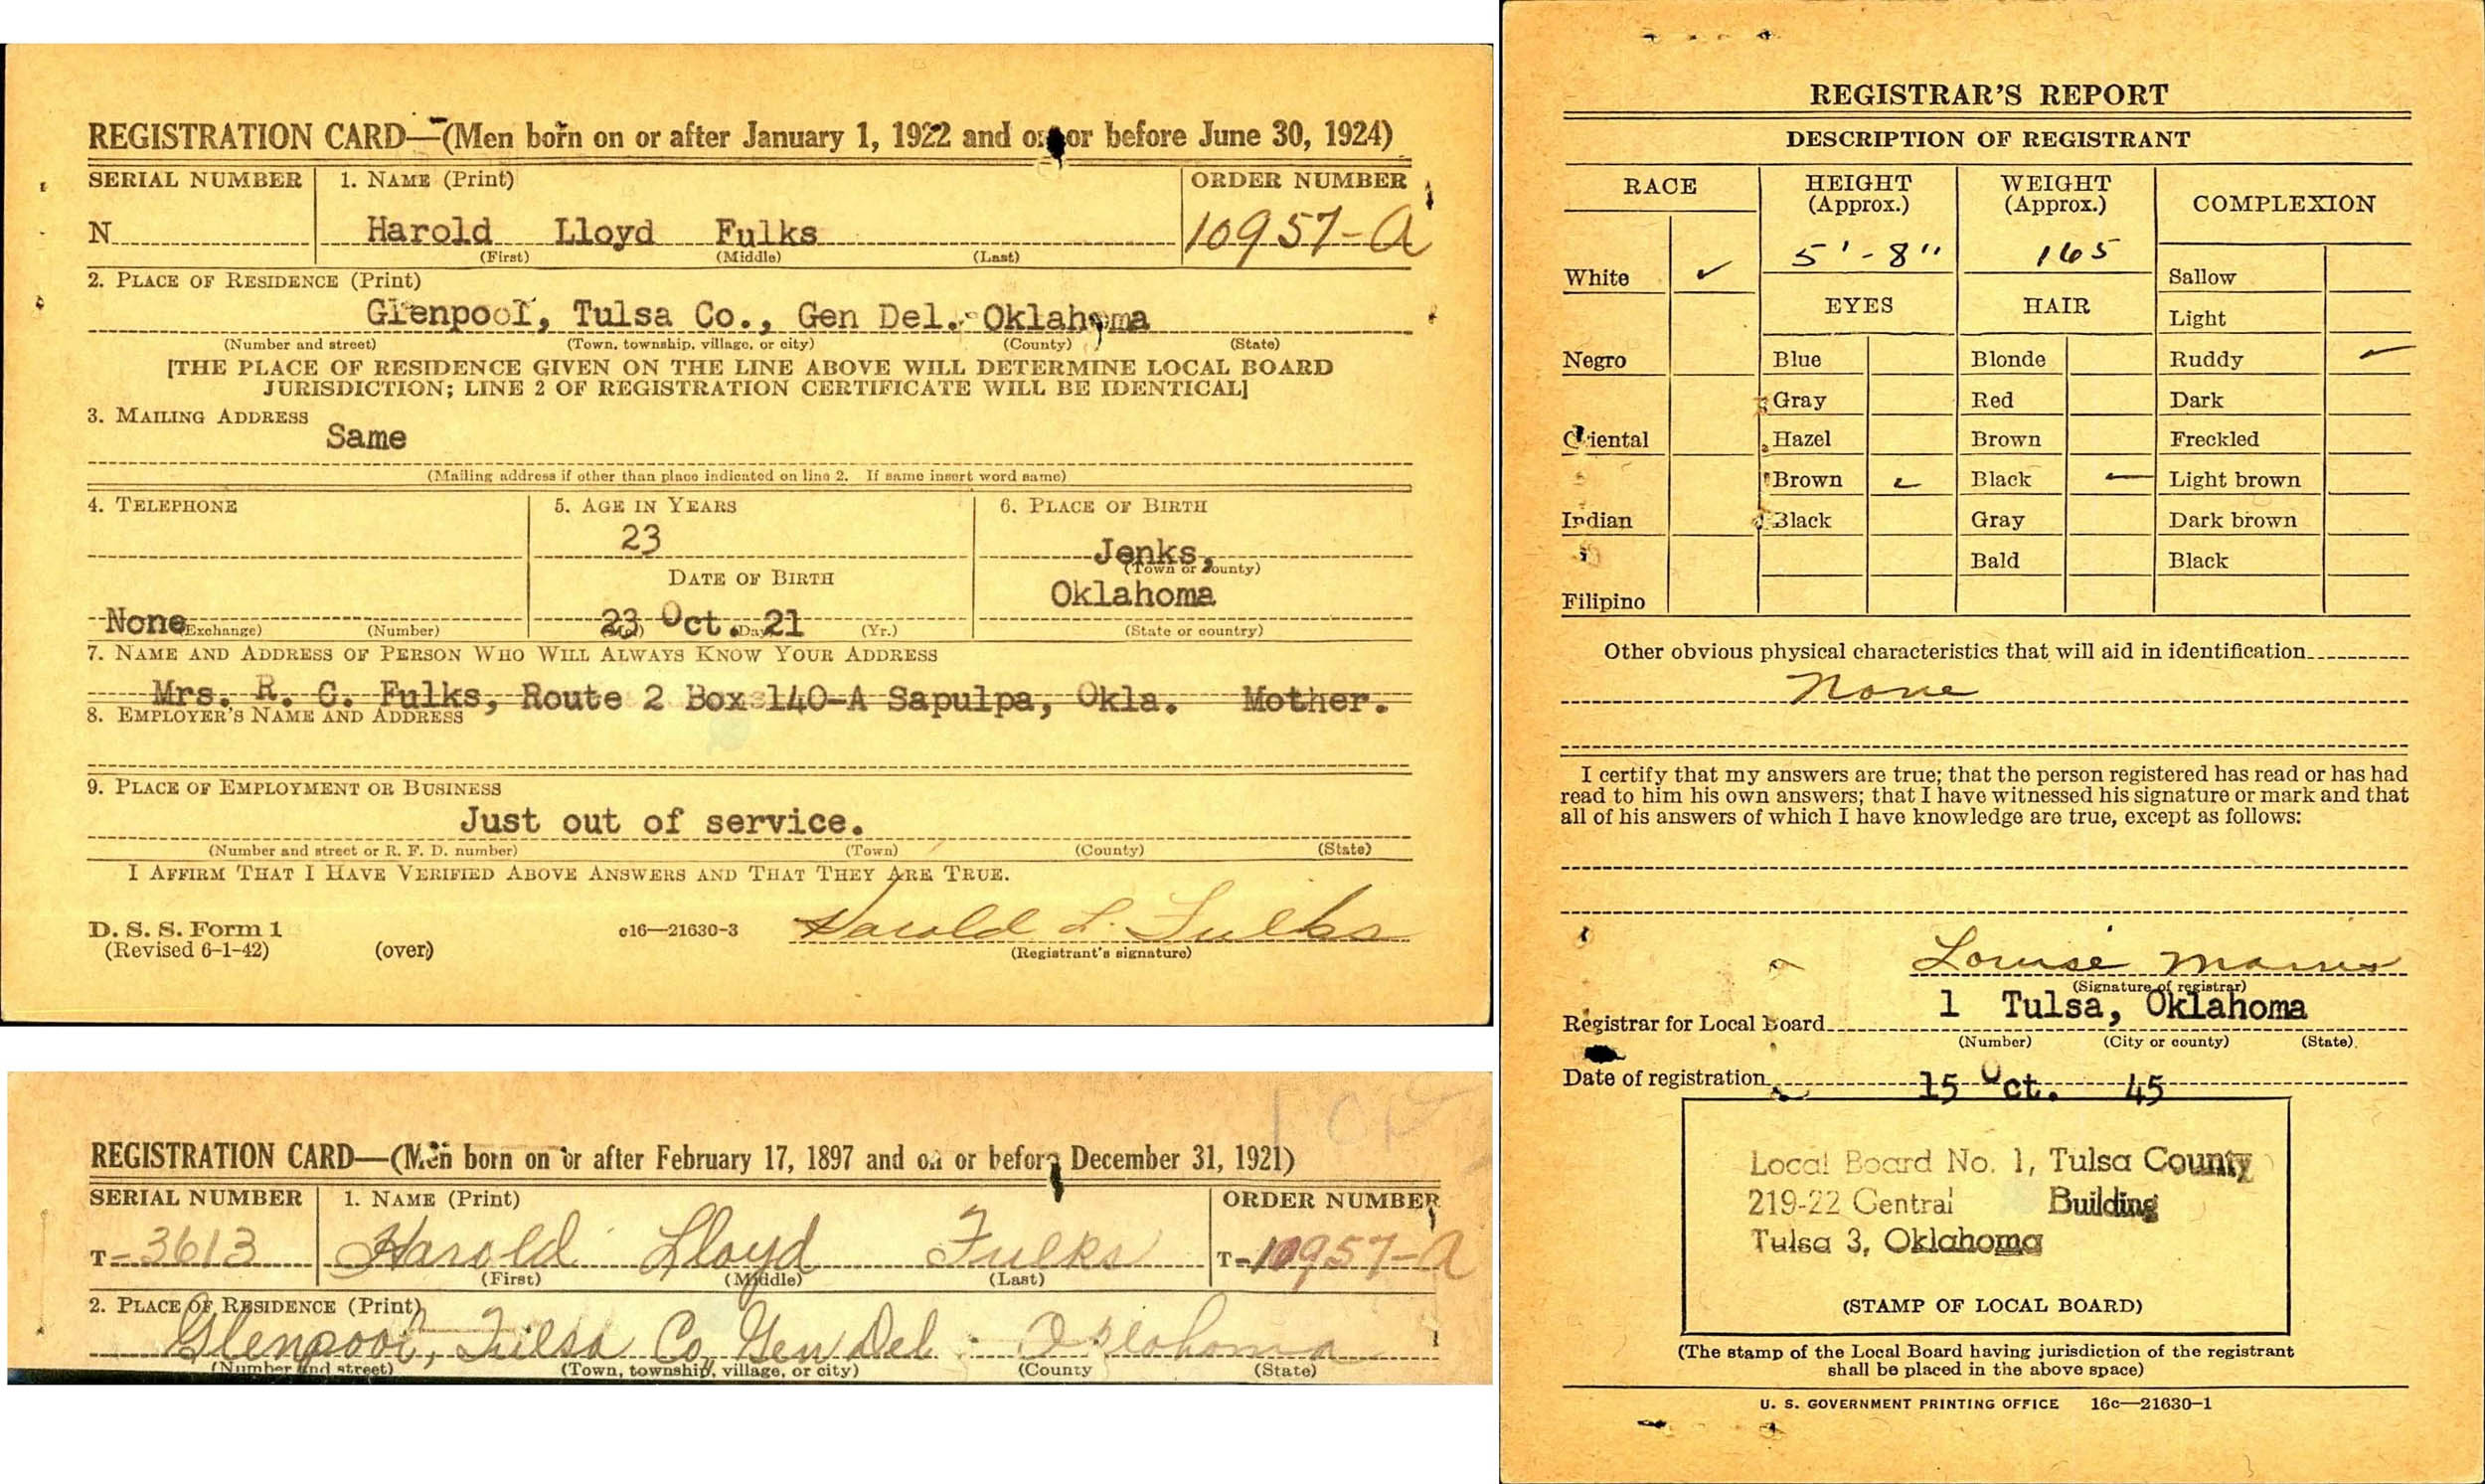 REGISTRATION CARD—(Men born on or after January 1, 1922 and on or before June 30, 1924)
SERIAL NUMBER 1. NAME (Print) ORDER NUMBER
N Harold Lloyd Fulks 10957-A
(First) (Middle) (Last)
2. PLACE OF RESIDENCE (Print)
Glenpool, Tulsa Co., Gen Del. Oklahoma
(Number and street) (Town, township, village, or city) (County) (State)
[THE PLACE OF RESIDENCE GIVEN ON THE LINE ABOVE WILL DETERMINE LOCAL BOARD
JURISDICTION; LINE 2 OF REGISTRATION CERTIFICATE WILL BE IDENTICAL]
3. MAILING ADDRESS
Same
(Mailing address if other than place indicated on line 2. If same insert word same)
4. TELEPHONE 5. AGE IN YEARS 6. PLACE OF BIRTH
23
Jenks,
(Town or county)
DATE OF BIRTH
Oklahoma
None 23 Oct. 21
(Exchange) (Number) (Mo.) (Day) (Yr.) (State or country)
7. NAME AND ADDRESS OF PERSON WHO WILL ALWAYS KNOW YOUR ADDRESS
Mrs. R. C. Fulks, Route 2 Box 140-A Sapulpa, Okla. Mother.
8. EMPLOYER'S NAME AND ADDRESS
9. PLACE OF EMPLOYMENT OR BUSINESS
Just out of service.
(Number and street or R. F. D. number) (Town) (County) (State)
I AFFIRM THAT I HAVE VERIFIED ABOVE ANSWERS AND THAT THEY ARE TRUE.
D. S. S. Form 1 c16—21630-3 Harold L. Fulks
(Revised 6-1-42) (over) (Registrant's signature)
REGISTRATION CARD—(Men born on or after February 17, 1897 and on or before December 31, 1921)
SERIAL NUMBER 1. NAME (Print) ORDER NUMBER
T-3613 Harold Lloyd Fulks T-10957-A
(First) (Middle) (Last)
2. PLACE OF RESIDENCE (Print)
Glenpool, Tulsa Co Gen Del Oklahoma
(Number and street) (Town, township, village, or city) (County (State)
REGISTRAR'S REPORT
DESCRIPTION OF REGISTRANT
RACE HEIGHT (Approx.) WEIGHT (Approx.) COMPLEXION
White ✓ 5'-8" 165 Sallow
EYES HAIR Light
Negro Blue Blonde Ruddy ✓
Gray Red Dark
Oriental Hazel Brown Freckled
Brown ✓ Black ✓ Light brown
Indian Black Gray Dark brown
Bald Black
Filipino
Other obvious physical characteristics that will aid in identification
None
I certify that my answers are true; that the person registered has read or has had
read to him his own answers; that I have witnessed his signature or mark and that
all of his answers of which I have knowledge are true, except as follows:
Louise
(Signature of registrar)
Registrar for Local Board 1 Tulsa, Oklahoma
(Number) (City or county) (State)
Date of registration 15 Oct. 45
Local Board No. 1, Tulsa County
219-22 Central Building
Tulsa 3, Oklahoma
(STAMP OF LOCAL BOARD)
(The stamp of the Local Board having jurisdiction of the registrant
shall be placed in the above space)
U. S. GOVERNMENT PRINTING OFFICE 16c—21630-1